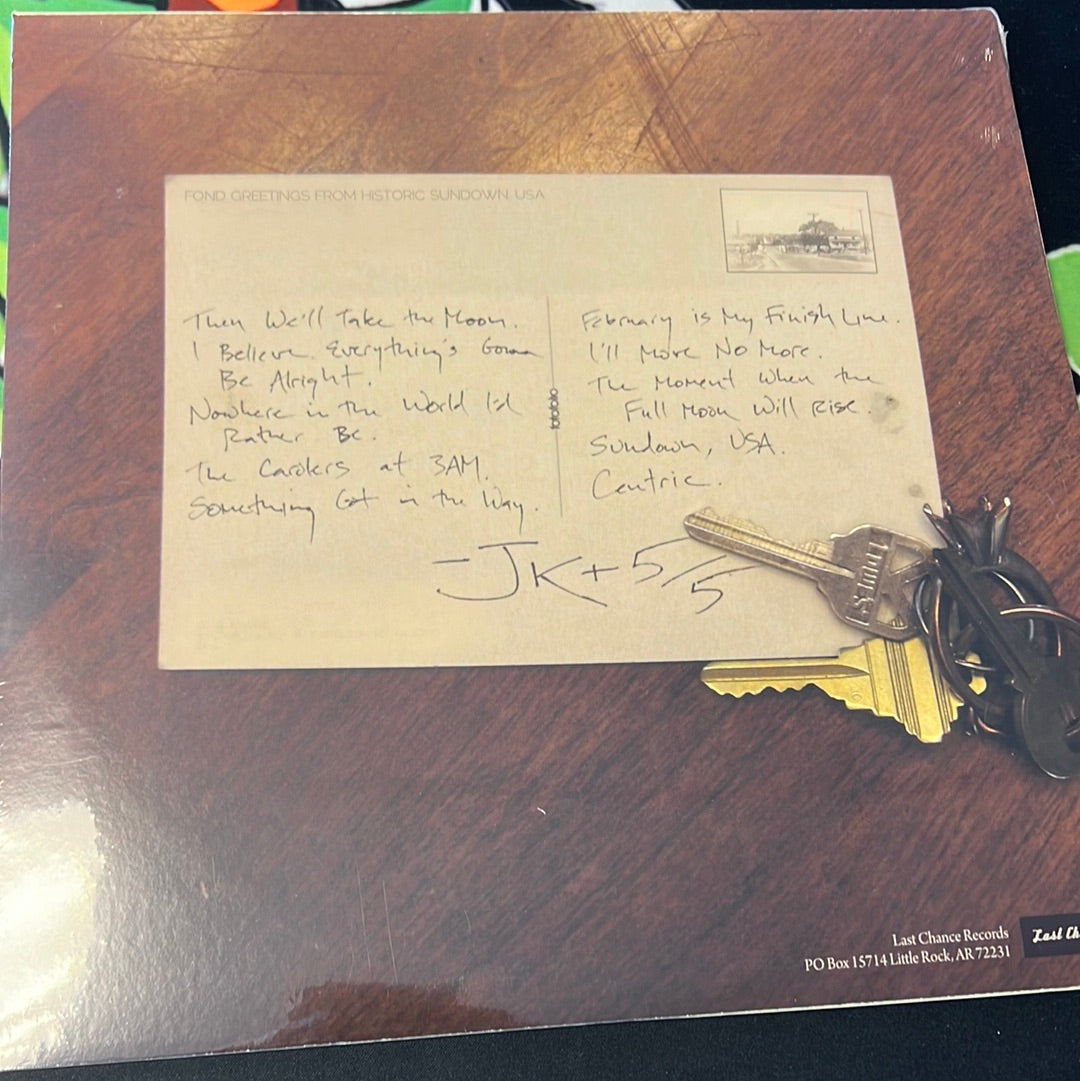 FOND GREETINGS FROM HISTORIC SUNDOWN, USA
Then We'll Take the Moon.
I Believe Everything's Gonna
Be Alright.
Nowhere in the World I'd
Rather Be.
The Carolers at 3AM.
Something Got in the Way.
fotofolio
February is My Finish Line.
I'll Move No More.
The Moment When the
Full Moon Will Rise.
Sundown, USA.
Centric.
-JK+5/5
Last Chance Records
PO Box 15714 Little Rock, AR 72231
Last Ch